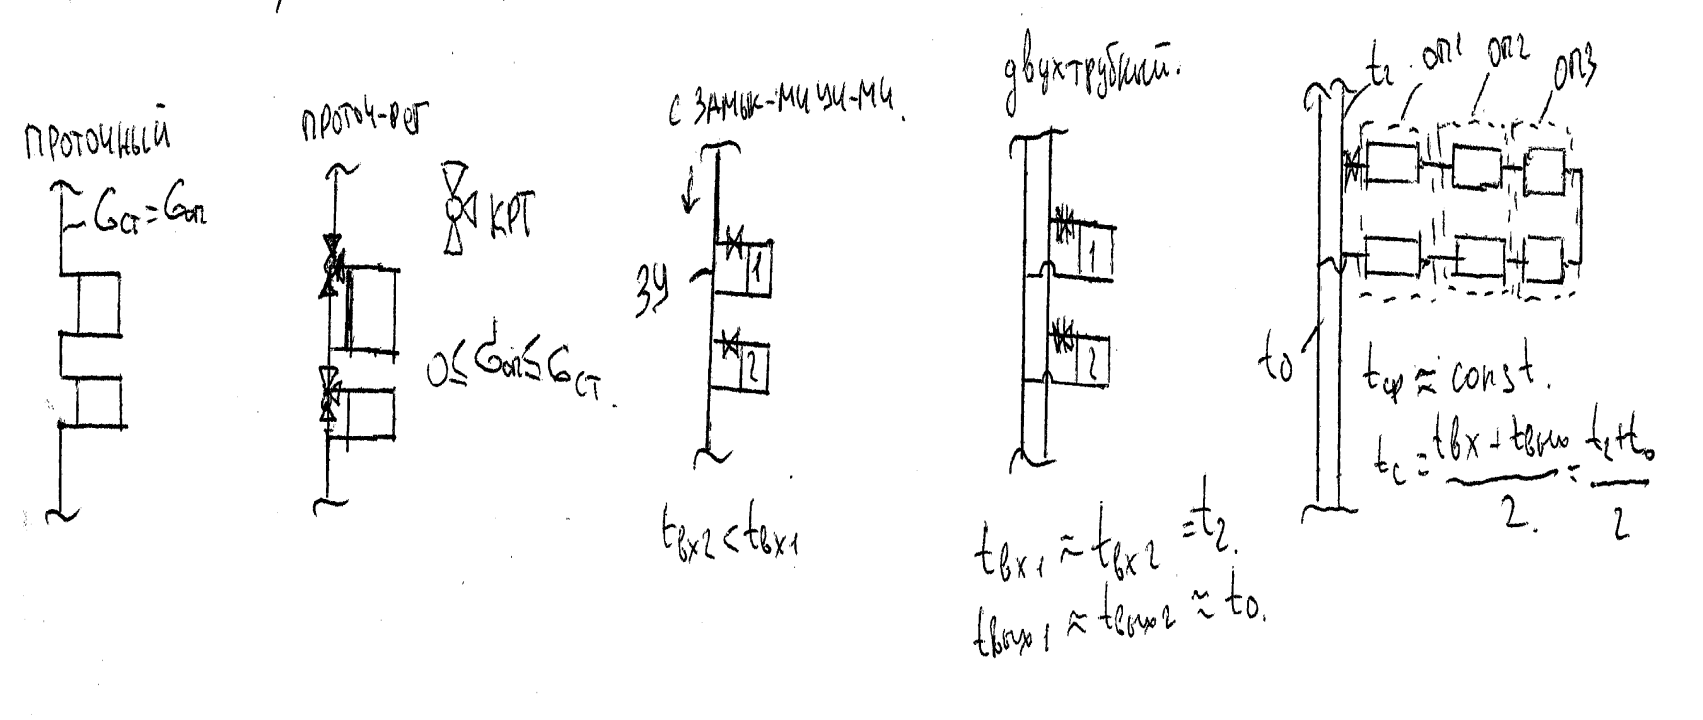 ПРОТОЧНЫЙ
Gст = Gоп
ПРОТОЧ-РЕГ
КРТ
0 ≤ Gоп ≤ Gст.
С ЗАМЫК-МИ УЧ-МИ.
ЗУ
1
2
tвх2 < tвх1
двухтрубный.
1
2
tвх1 ≈ tвх2 = tг.
tвых1 ≈ tвых2 ≈ t0.
tг
ОП1
ОП2
ОП3
t0
tср ≈ const.
tс = (tвх + tвых)/2. = (tг + t0)/2